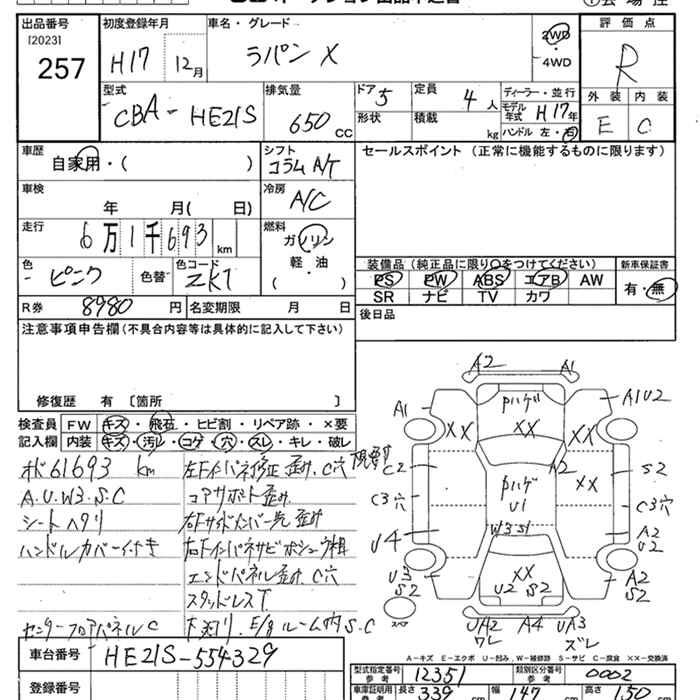 出品番号
[2023]
257
初度登録年月
H17 12月
車名・グレード
ラパン X
2WD
・
4WD
評価点
R
型式
CBA - HE21S
排気量
650 CC
ドア 5
形状
定員 4 人
積載 kg
ディーラー・並行
モデル年式 H17年
ハンドル 左・右
外装 内装
E C
車歴
自家用・( )
シフト
コラムA/T
セールスポイント (正常に機能するものに限ります)
車検
年 月( 日)
冷房
A/C
走行
6万1千693 km
燃料
ガソリン
軽・油
( ・ )
色
ピンク 色替
色コード
ZKT
装備品 (純正品に限り○をつけてください)
PS PW ABS エアB AW
SR ナビ TV カワ
新車保証書
有・無
R券 8980 円
名変期限 月 日
後日品
注意事項申告欄 (不具合内容等は具体的に記入して下さい)
修復歴 有 〔箇所 〕
検査員 FW キズ・飛石・ヒビ割・リペア跡・×要
記入欄 内装 キズ・汚レ・コゲ・穴・スレ・キレ・破レ
61693 km
A.U.W3.S.C
シートヘタリ
ハンドルカバー
コアサポート歪み
エンドパネル歪み C穴
スタッドレスT
センターフロアパネルC
下廻り E/gルーム内 S.C
A2 A1
A1 PハゲA1U2
XX XX XX
C2 A2 S2
C3穴 Pハゲ XX C3穴
U1
U4 W3S1 A2
U2
U3 XX A2
S2 U2 S2 S2
UA2 A4 UA3
ワレ ズレ
A-キズ E-エクボ U-凹み W-補修跡 S-サビ C-腐食 XX-交換済
車台番号 HE21S-554329
登録番号
型式指定番号 12351 類別区分番号 0002
車庫証明用 長さ 339 cm 幅 147 cm 高さ 150 cm